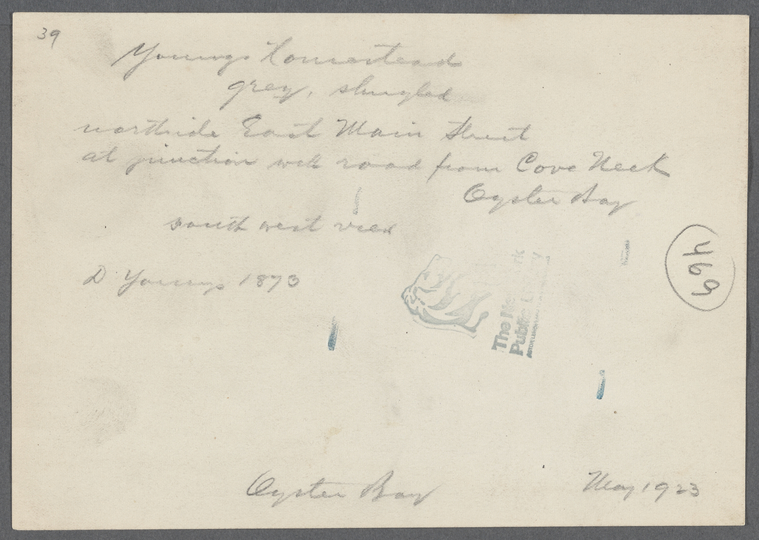 39
Youngs Homestead
grey, shingled
northside East Main Street
at junction with road from Cove Neck
Oyster Bay
south west view
D Youngs 1873
499
The New York
Public Library
Oyster Bay
May 1923